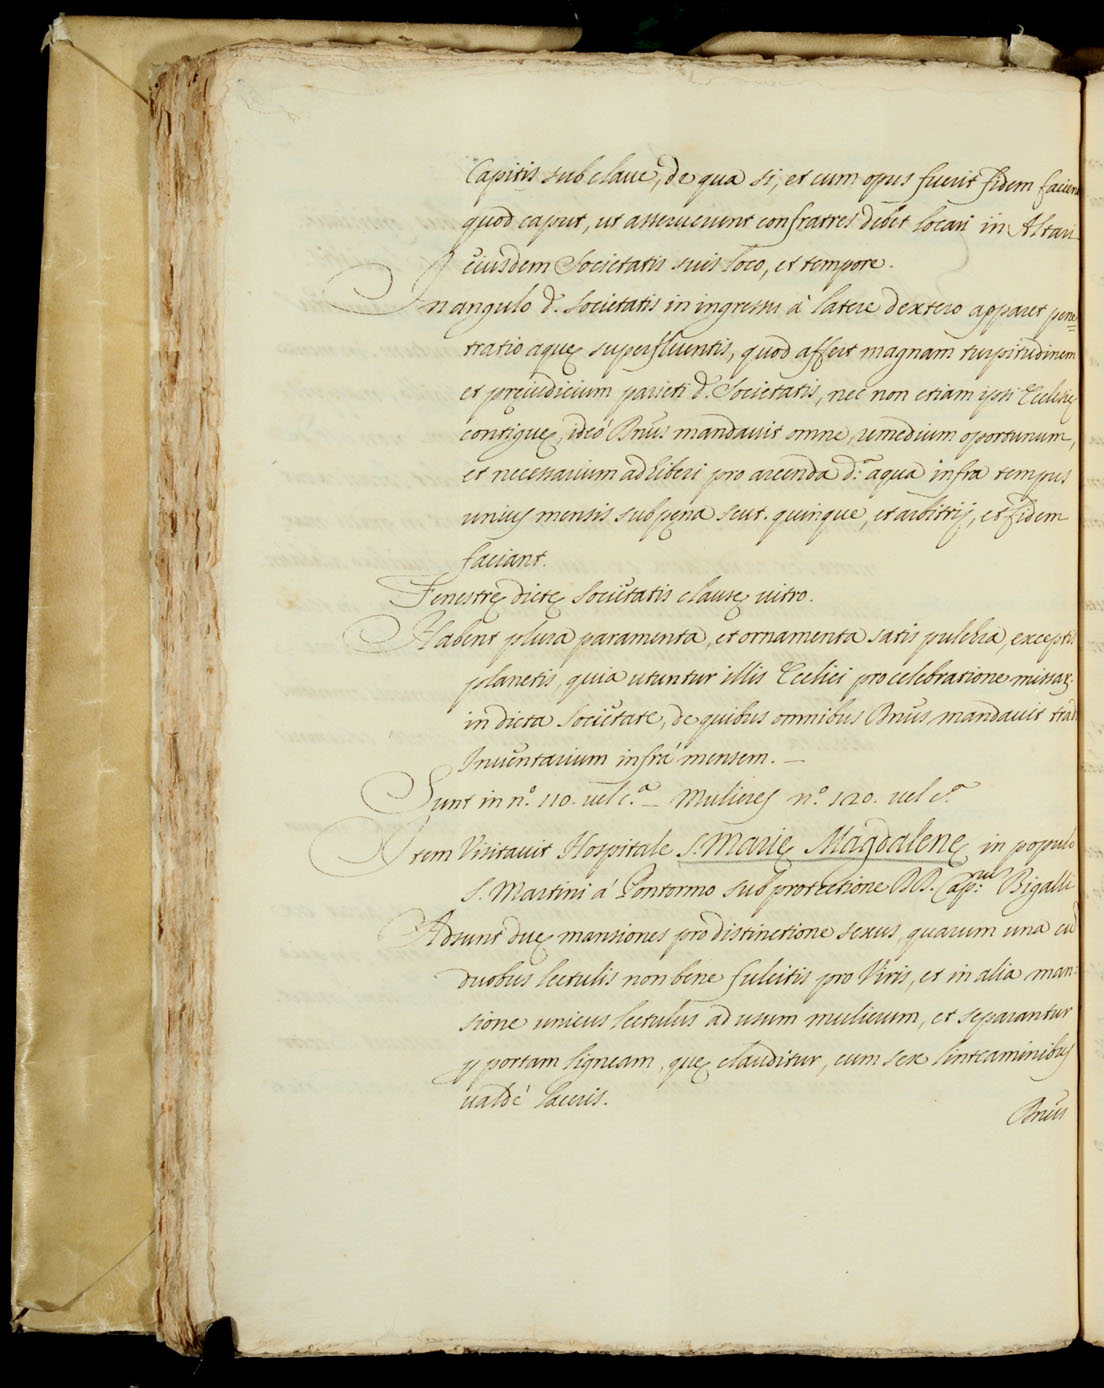 Capitis sub clave, de qua si, et cum opus fuerit fidem faciant
quod caput, ut asseruerunt confratres debet locari in Altari
eiusdem Societatis suis loco, et tempore.
In angulo d. Societatis in ingressu à latere dextero apparet pene=
tratio aquę superfluentis, quod affert magnam turpitudinem
et pręiudicium parieti d. Societatis, nec non etiam ipsi Ecclesię
contiguę, ideó Rmus mandavit omne remedium oportunum,
et necessarium adhiberi pro arcenda d.ª aqua infra tempus
unius mensis sub pęna scut. quinque, et arbitrij, et fidem
faciant.
Fenestrę dictę Societatis clausę vitro.
Habent plura paramenta, et ornamenta satis pulchra, exceptis
planetis, quia utuntur illis Ecclię pro celebratione missarꝫ
in dicta Societate, de quibus omnibus Rmus mandavit tradi
Inventarium infrá mensem. —
Sunt in nº. 110. vel c.ª — Mulieres nº. 120. vel c.ª
Item Visitavit Hospitale S. Marię Magdalenę in populo
S. Martini á Pontormo sub protectione DD. Cap.rum Bigalli
Adsunt duę mansiones pro distinctione sexus, quarum una cū
duobus lectulis non bene fulcitis pro Viris, et in alia man:
sione unicus lectulus ad usum mulierum, et separantur
ꝑ portam ligneam, quę clauditur, cum sex linteaminibus
valdé laceris.
Rmus